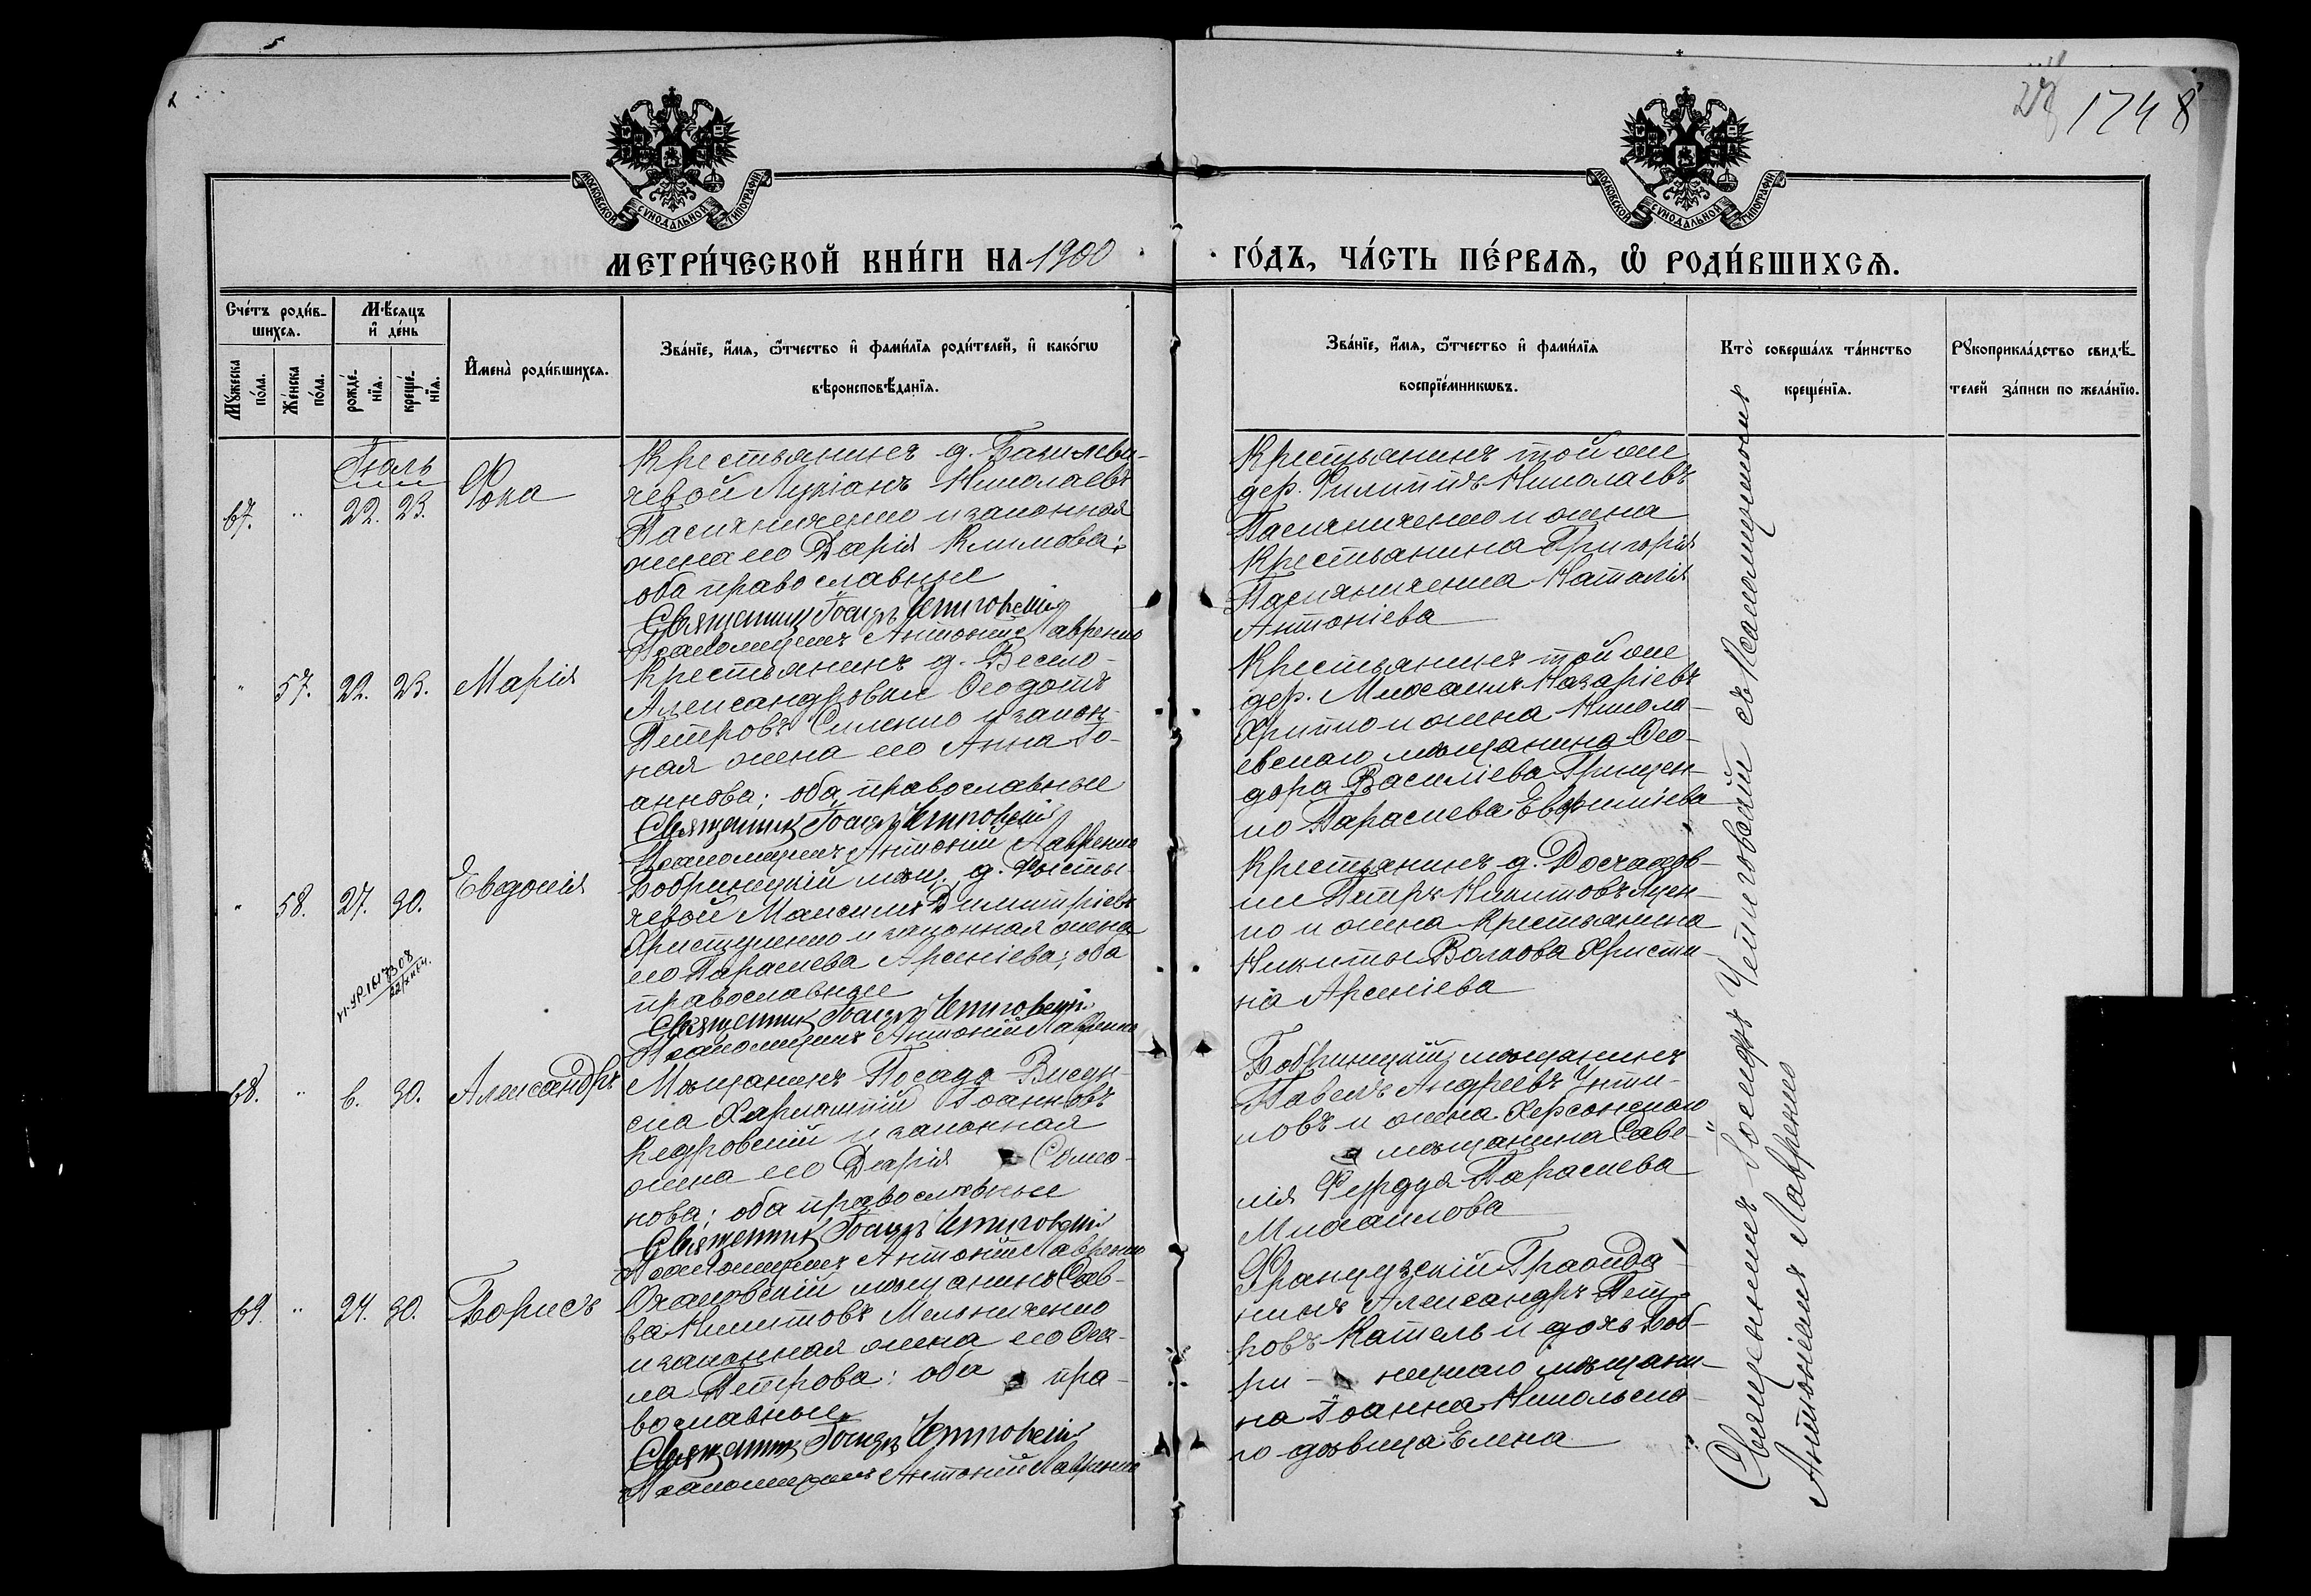 28 1748
МОСКОВСКОЙ СѴНОДАЛЬНОЙ ТИПОГРАФІИ
МОСКОВСКОЙ СѴНОДАЛЬНОЙ ТИПОГРАФІИ
МЕТРИ́ЧЕСКОЙ КНИ́ГИ НА 1900 ГО́ДЪ, ЧА́СТЬ ПЕ́РВАѦ, Ѡ҆ РОДИ́ВШИХСѦ.
Сче́тъ роди́в-
шихсѧ.
Мꙋ́жеска по́ла.
Же́нска по́ла.
Мѣ́сѧцъ
и҆ де́нь
рожде́-
нїѧ.
креще́-
нїѧ.
И҆мена̀ роди́вшихсѧ.
Зва́нїе, и҆́мѧ, ѻ҆́тчество и҆ фами́лїѧ роди́телей, и҆ како́гѡ
вѣроисповѣ́данїѧ.
Зва́нїе, и҆́мѧ, ѻ҆́тчество и҆ фами́лїѧ
воспрїе́мникѡвъ.
Кто̀ соверша́лъ та́инство
креще́нїѧ.
Рꙋкоприкла́дство свидѣ́-
телей за́писи по жела́нїю.
Іюль
67. " 22. 23. Фока
Крестьянинъ д. Базилеви-
чевой Лукіанъ Николаевъ
Пасичниченко и законная
жена его Дарія Климова;
оба православные
Священникъ Іосифъ Чепиговскій
Псаломщикъ Антоній Лавренко
Крестьянинъ той же
дер. Филиппъ Николаевъ
Пасичниченко и жена
крестьянина Григорія
Пасичниченка Наталія
Антоніева
" 57. 22. 23. Марія
Крестьянинъ д. Весело-
Александровки Ѳеодотъ
Петровъ Силенко и закон-
ная жена его Анна Іо-
аннова; оба православные
Священникъ Іосифъ Чепиговскій
Псаломщикъ Антоній Лавренко
Крестьянинъ той же
дер. Михаилъ Назаріевъ
Хрипко и жена Никола-
евскаго мѣщанина Ѳео-
дора Василіева Грищен-
ко Параскева Евфиміева
" 58. 27. 30. Евдокія
Бобринецкій мѣщ. д.
чевой Максимъ Димитріевъ
Христуленко и законная жена
его Параскева Арсеніева; оба
православные
Священникъ Іосифъ Чепиговскій
Псаломщикъ Антоній Лавренко
Крестьянинъ д.
ки Петръ Никитовъ Луцен-
ко и жена крестьянина
Никиты Волкова Христи-
на Арсеніева
68. " 6. 30. Александръ
Мѣщанинъ Посада Висун-
ска Харлампій Іоанновъ
Кедровскій и законная
жена его Дарія Симо-
нова; оба православные
Священникъ Іосифъ Чепиговскій
Псаломщикъ Антоній Лавренко
Бобринецкій мѣщанинъ
Павелъ Андреевъ
ковъ и жена Херсонскаго
мѣщанина Саве-
лія Параскева
Михаилова
69. " 24. 30. Борисъ
Очаковскій мѣщанинъ Сав-
ва Никитовъ Мельниченко
и законная жена его Ѳек-
ла Петрова; оба пра-
вославные
Священникъ Іосифъ Чепиговскій
Псаломщикъ Антоній Лавренко
Французскій Гражда-
нинъ Александръ Пет-
ровъ Катель и дочь Боб-
ри- нецкаго мѣщани-
на Іоанна Никольска-
го дѣвица Елена
Священникъ Іосифъ Чепиговскій съ Псаломщикомъ
Антоніемъ Лавренко